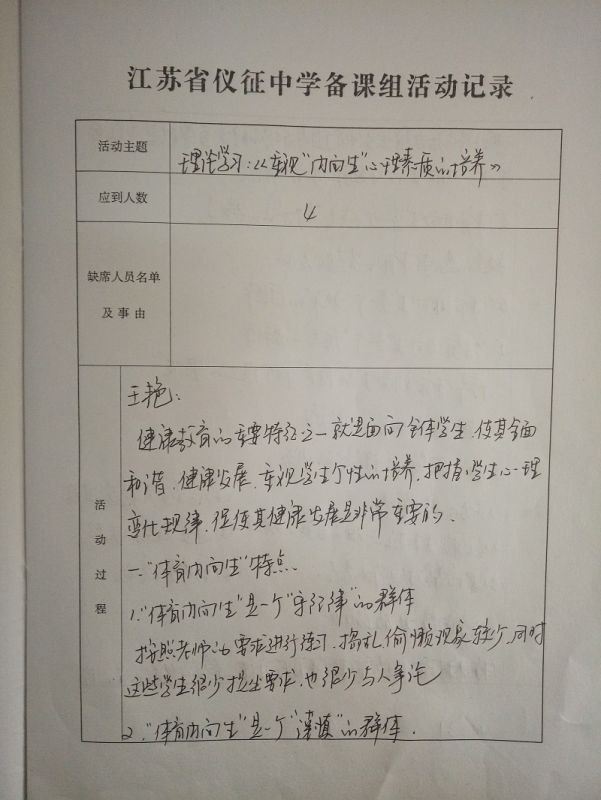 江苏省仪征中学备课组活动记录
活动主题
理论学习：《重视"内向生"心理素质的培养》
应到人数
4
缺席人员名单
及事由
活动过程
王艳：
健康教育的重要特征之一就是面向全体学生,使其全面
和谐、健康发展,重视学生个性的培养,把握学生心理
变化规律,促使其健康发展是非常重要的.
一."体育内向生"特点.
1."体育内向生"是一个"守纪律"的群体
按照老师的要求进行练习,捣乱,偷懒现象较少,同时
这些学生很少提出要求,也很少与人争论
2."体育内向生"是一个"谨慎"的群体.